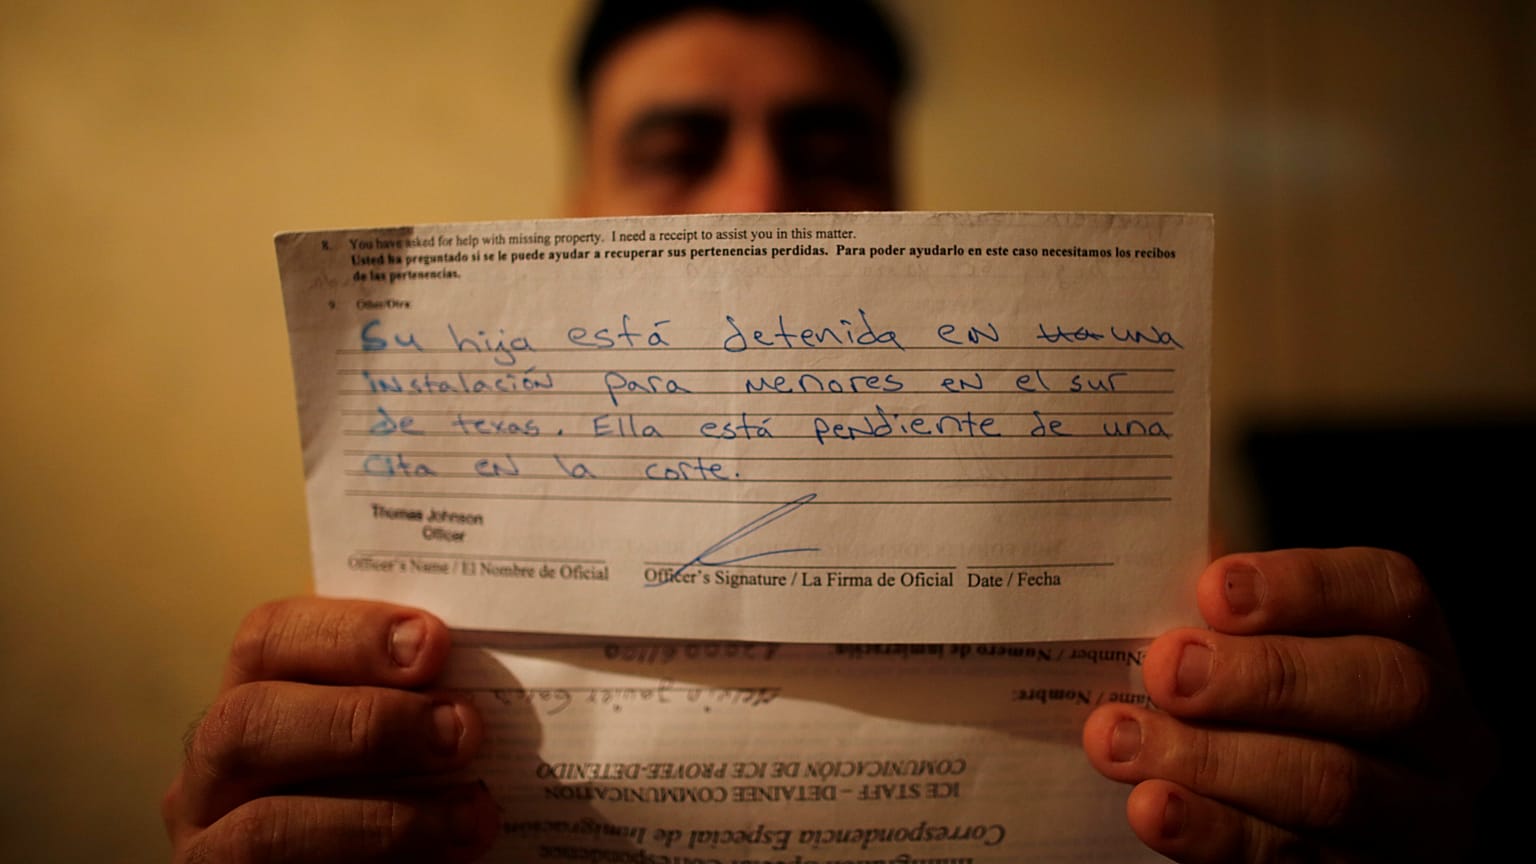 8. You have asked for help with missing property. I need a receipt to assist you in this matter.
Usted ha preguntado si se le puede ayudar a recuperar sus pertenencias perdidas. Para poder ayudarlo en este caso necesitamos los recibos
de las pertenencias.
9. Other/Otra
Su hija está detenida en una
instalación para menores en el sur
de texas. Ella está pendiente de una
cita en la corte.
Thomas Johnson
Officer
Officer's Name / El Nombre de Oficial Officer's Signature / La Firma de Oficial Date / Fecha
Number / Numero de Inmigración:
Name / Nombre: Melvin Javier Garcia
COMUNICACIÓN DE ICE PROVEE-DETENIDO
ICE STAFF – DETAINEE COMMUNICATION
Correspondencia Especial de Inmigración